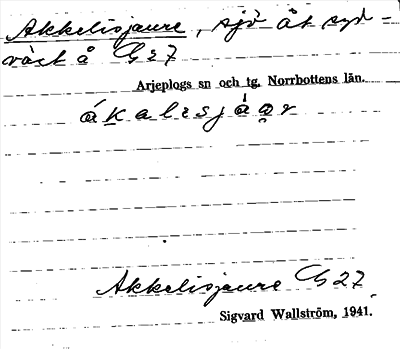 Akkelisjaure, sjö åt syd-
väst å G 27
Arjeplogs sn och tg. Norrbottens län.
Akkelisjaure G 27
Sigvard Wallström, 1941.